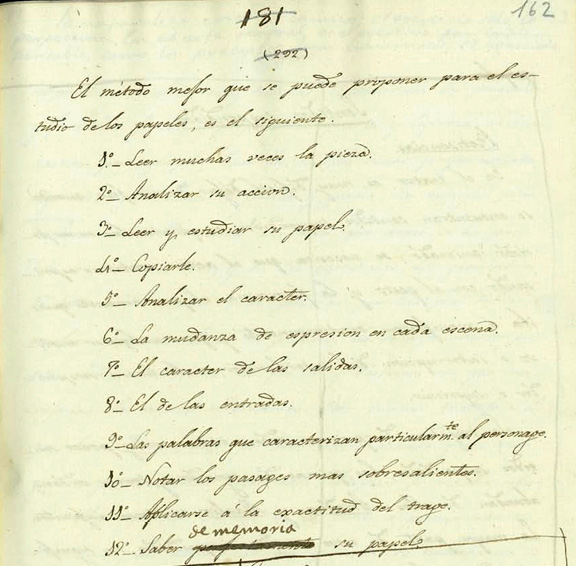 181
162
(292)
El método mejor que se puede proponer para el es-
tudio de los papeles, es el siguiente.
1º_ Leer muchas veces la pieza.
2º_ Analizar su accion.
3º_ Leer y estudiar su papel.
4º_ Copiarle.
5º_ Analizar el caracter.
6º_ La mudanza de espresion en cada escena.
7º_ El caracter de las salidas.
8º_ El de las entradas.
9º_ Las palabras que caracterizan particularmte. al personage.
10º_ Notar los pasages mas sobresalientes.
11º_ Aplicarse a la exactitud del trage.
de memoria
12º_ Saber su papel